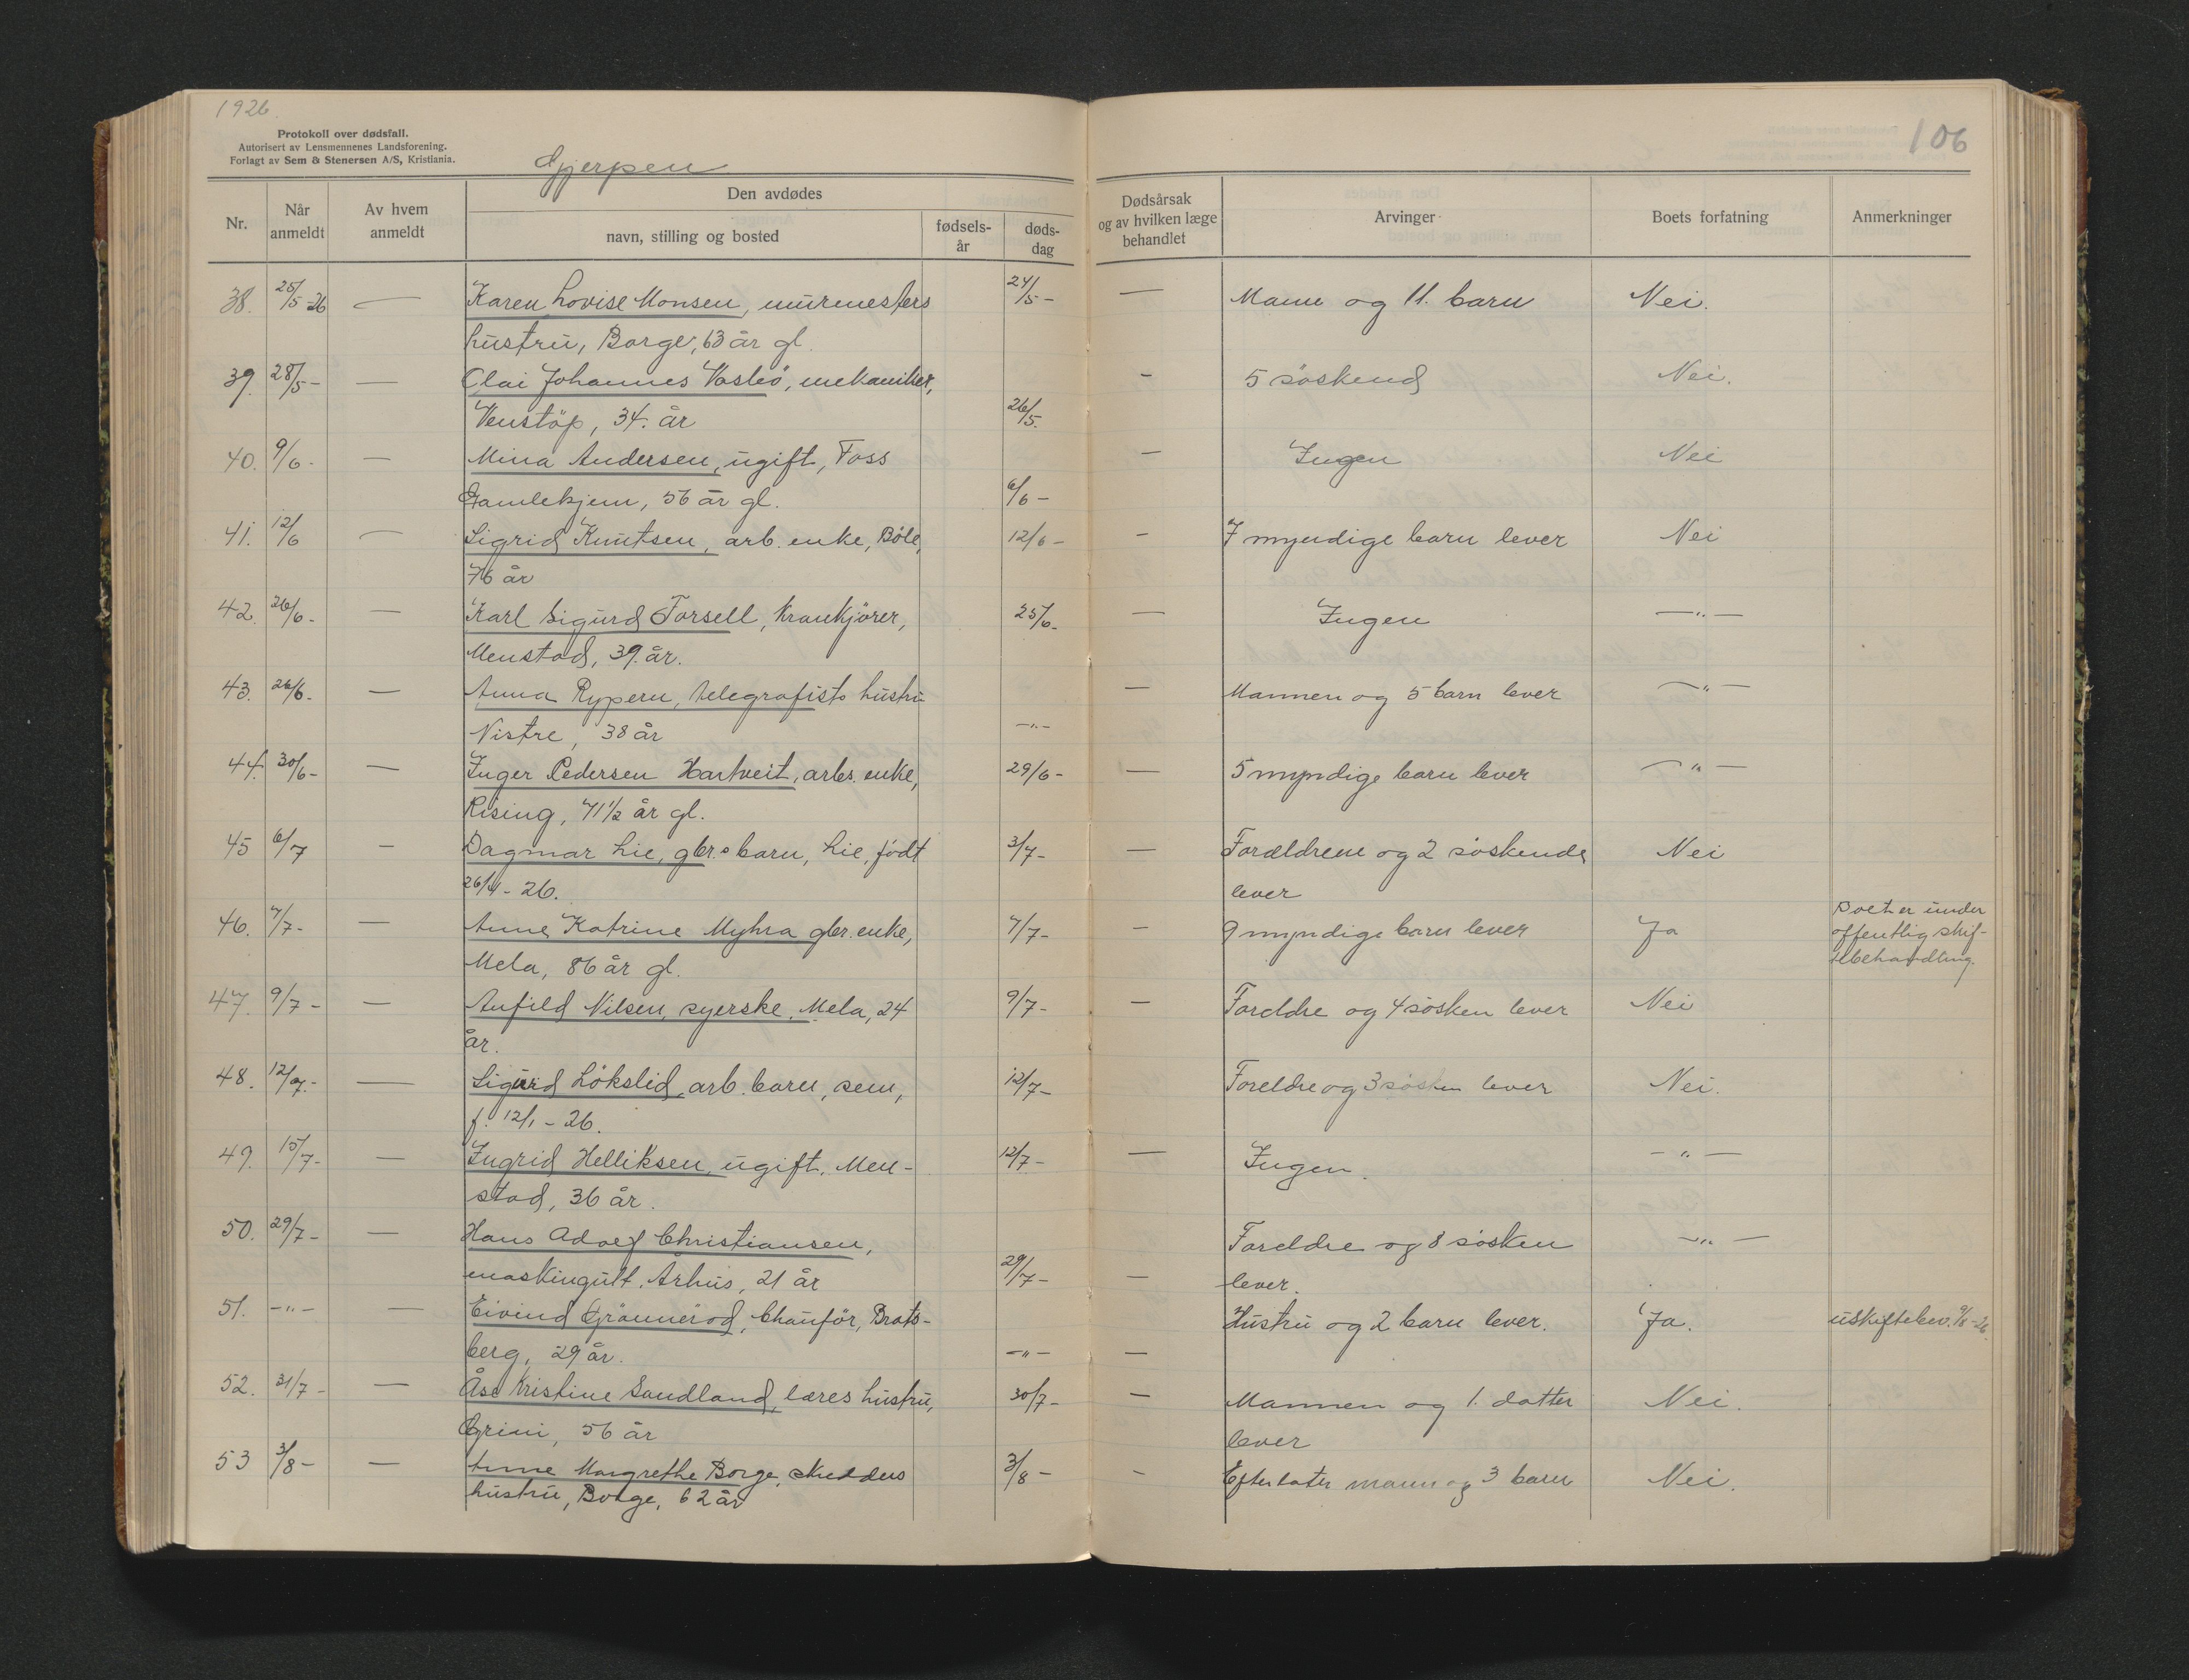 1926.
Protokoll over dødsfall.
Autorisert av Lensmennenes Landsforening.
Forlagt av Sem & Stenersen A/S, Kristiania.
Gjerpen
106
Nr.
Når anmeldt
Av hvem anmeldt
Den avdødes
navn, stilling og bosted
fødsels-år
døds-dag
Dødsårsak og av hvilken læge behandlet
Arvinger
Boets forfatning
Anmerkninger
38. 25/5-26 — Karen Lovise Monsen, murmesters 24/5- — Mann og 11. barn Nei.
hustru, Borge, 63 år gl.
39. 28/5- — Olai Johannes Vasbø, mekaniker, - 5 søskend Nei.
Venstøp, 34. år 26/5.
40. 9/6- — Mina Andersen, ugift, Foss — Ingen Nei
Gamlekjem, 56 år gl. 6/6-
41. 12/6 — Sigrid Knutsen, arb. enke, Bøle, 12/6- - 7 myndige barn lever Nei
76 år
42. 26/6- — Karl Sigurd Forsell, krankjører, 25/6- — Ingen —"—
Menstad, 39. år.
43. 26/6- — Anna Rypern, telegrafists hustru — Mannen og 5 barn lever —"—
Nistre, 38 år -"-
44. 30/6- — Inger Pedersen Hartveit, arbs. enke, 29/6- — 5 myndige barn lever —"—
Rising, 71 1/2 år gl.
45 6/7 - Dagmar Lie, gbr.s barn, Lie, født 3/7- — Forældrene og 2 søskende Nei
26/4-26. lever
46. 7/7- — Anne Katrine Myhra gbr. enke, 7/7- - 9 myndige barn lever Ja Boet er under
offentlig skif-
Mela, 86 år gl. tebehandling.
47. 9/7- — Anfild Nilsen, syerske, Mela, 24 9/7- — Foreldre og 4 søsken lever Nei
år.
48. 12/7- — Sigurd Løkslid, arb. barn, Sem, 12/7- Foreldre og 3 søsken lever Nei.
f. 12/1-26.
49. 15/7- — Ingrid Helliksen, ugift, Men- 12/7- — Ingen. -"—
stad, 36 år.
50. 29/7- — Hans Adolf Christiansen, Foreldre og 8 søsken -"—
maskingult. Århus, 21 år 29/7- — lever.
51. -"- — Eivind Grønnerød, Chauför, Brats- Hustru og 2 barn lever. Ja. uskiftebev. 9/8-26.
berg, 29 år. -"- —
52. 31/7- — Åse Kristine Sandland, læres hustru, 30/7- — Mannen og 1. datter Nei.
Grini, 56 år lever
53 3/8- — Anne Margrethe Borge, skredders 3/8- - Efterlater mann og 3 barn Nei.
hustru, Borge, 62 år